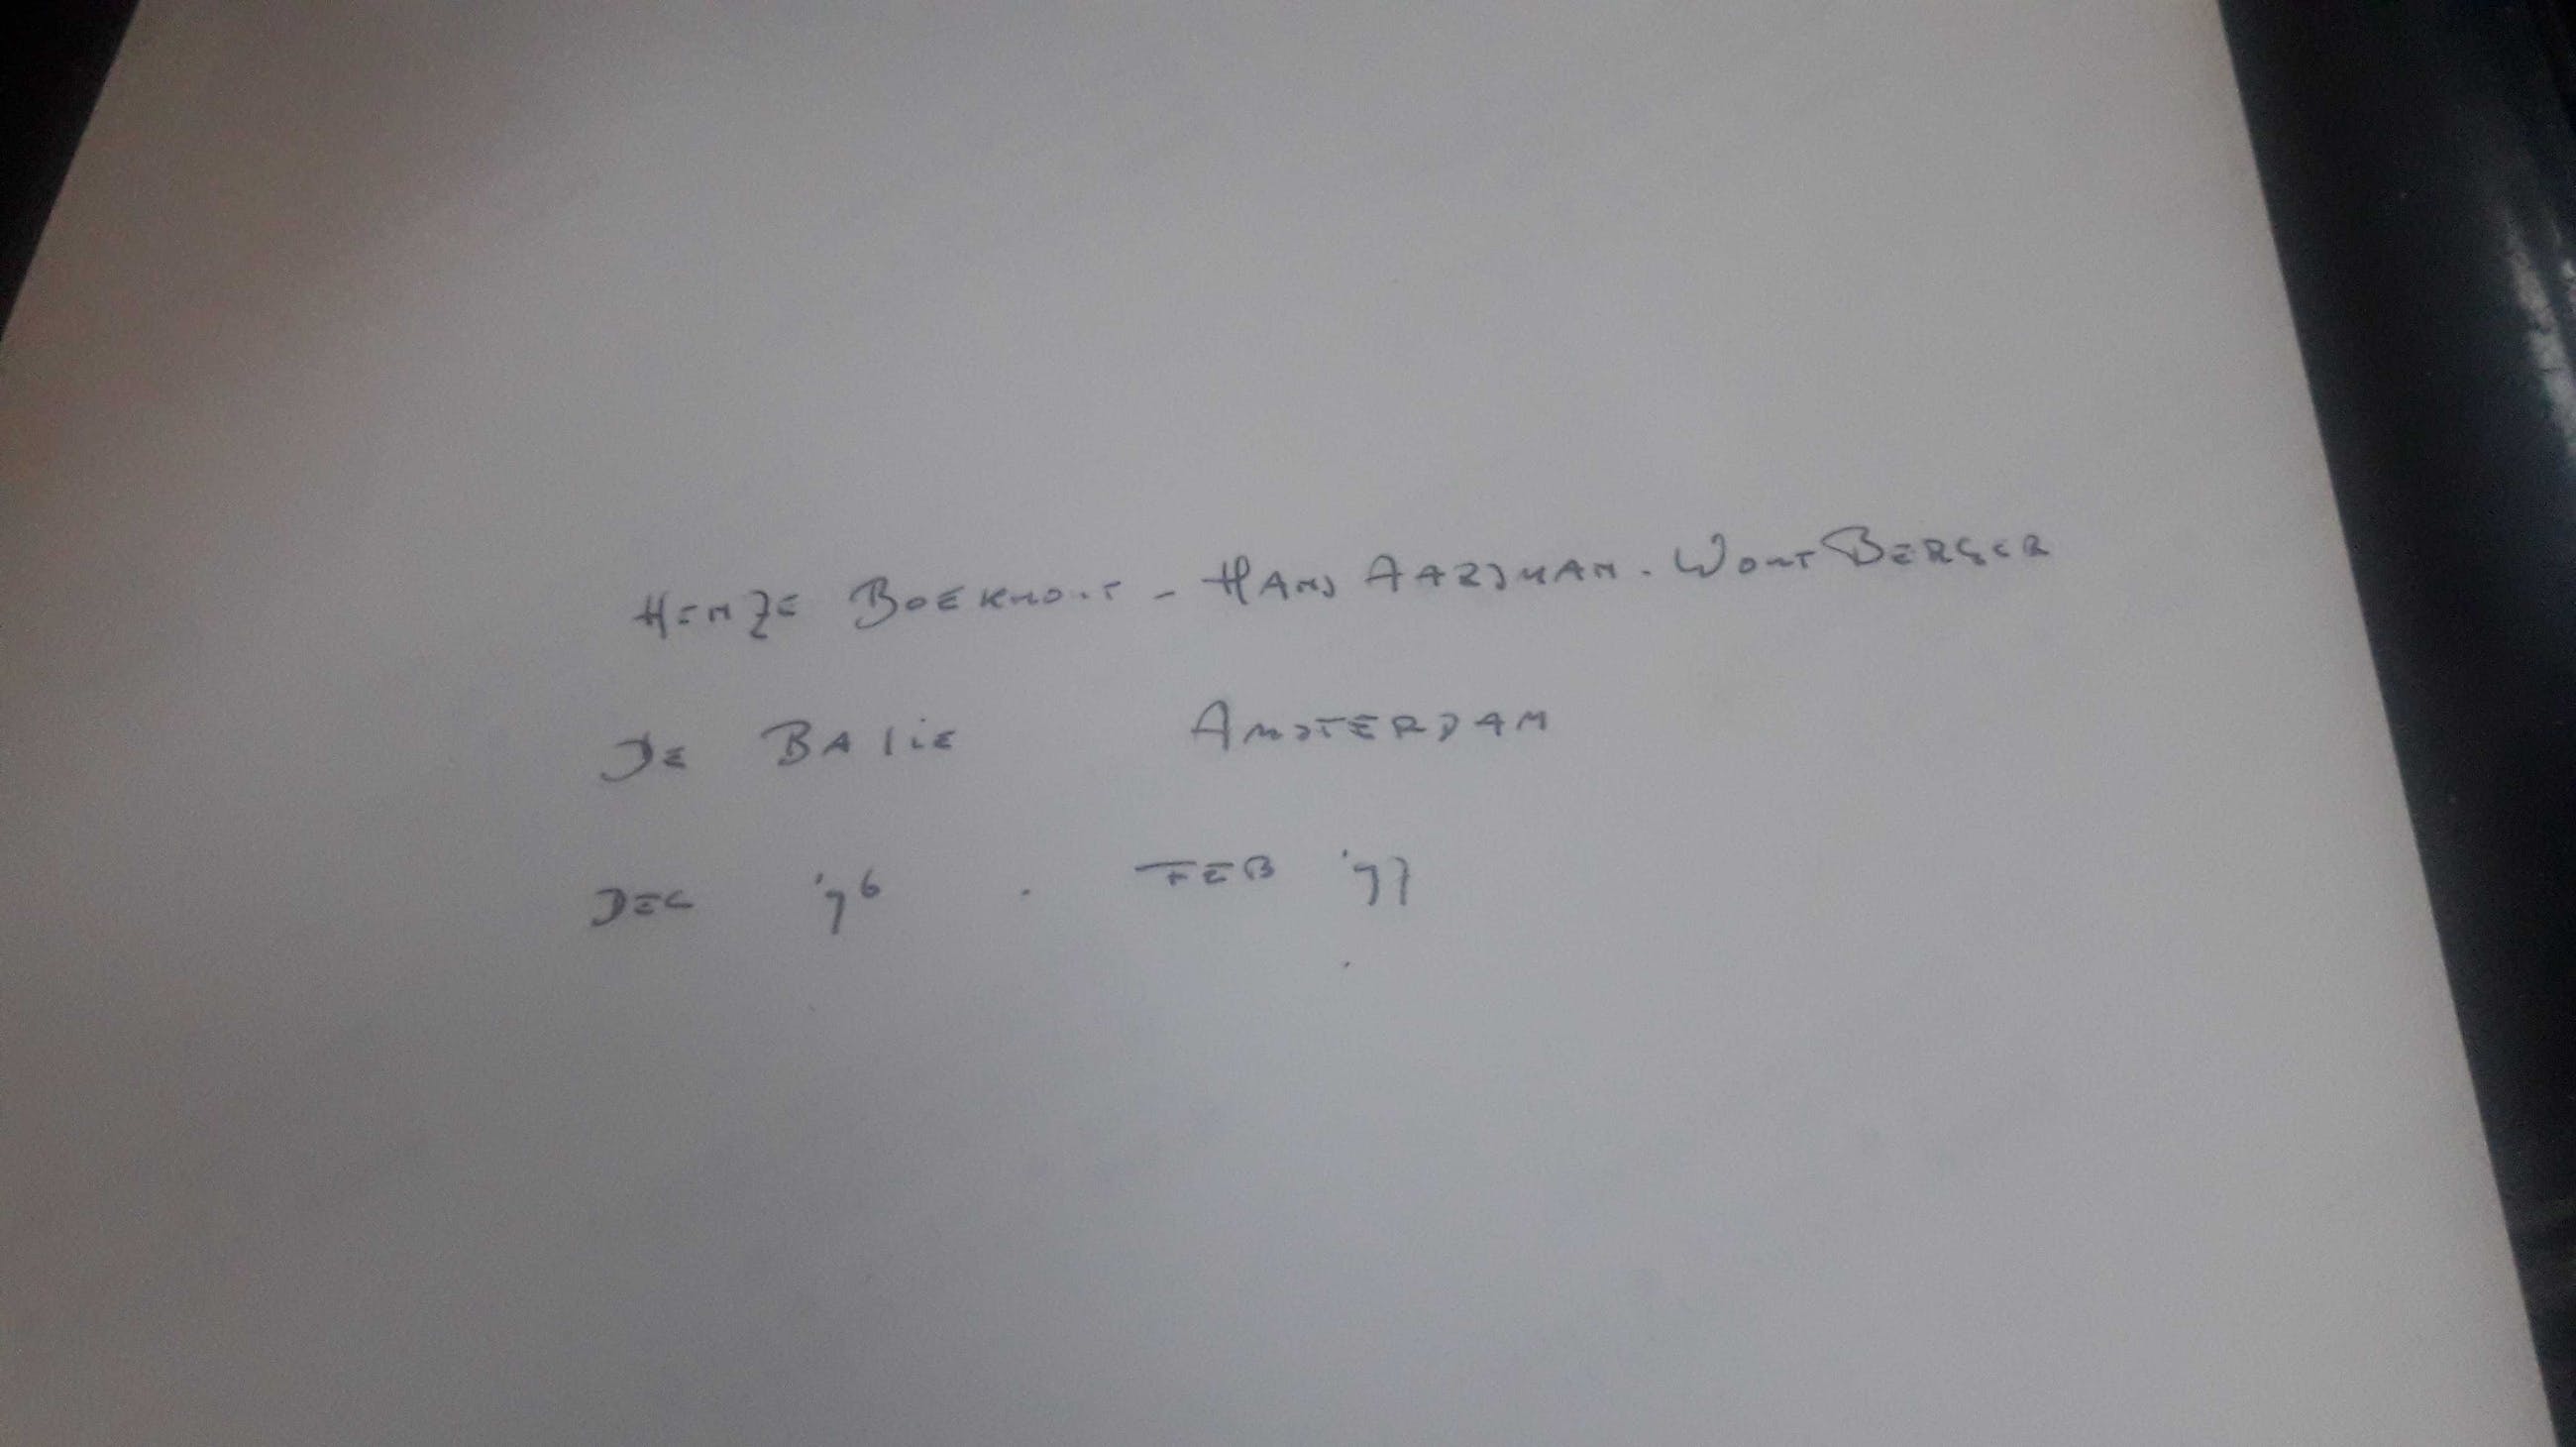 HENZE BOEKHOUT - HANS AARSMAN. WOUT BERGER
DE BALIE AMSTERDAM
DEC '96 . FEB '97